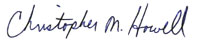 Christopher M. Howell